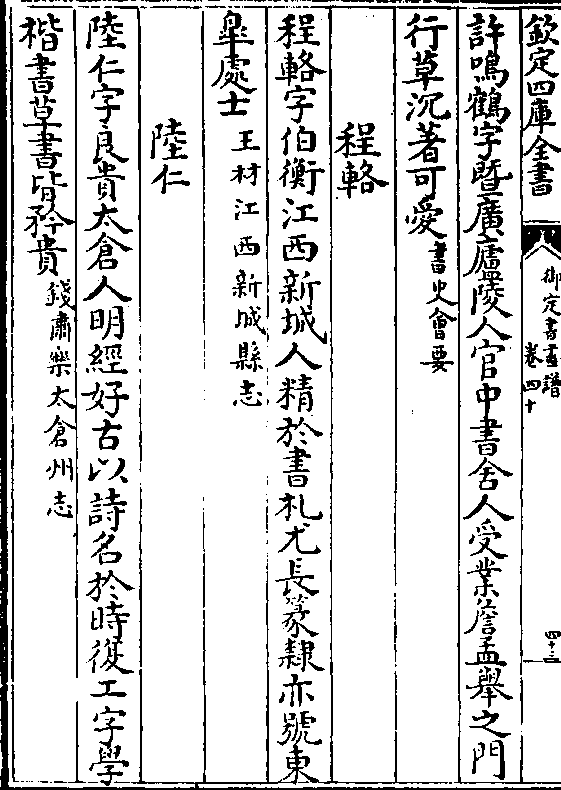 欽定四庫全書
御定書畫譜
卷四十
四十三
許鳴鶴字曁廣廬陵人官中書舍人受業詹孟舉之門
行草沉著可愛書史會要
程輅
程輅字伯衡江西新城人精於書札尤長篆隸亦號東
臯處士王材江西新城縣志
陸仁
陸仁字良貴太倉人明經好古以詩名於時復工字學
楷書草書皆矜貴錢肅樂太倉州志